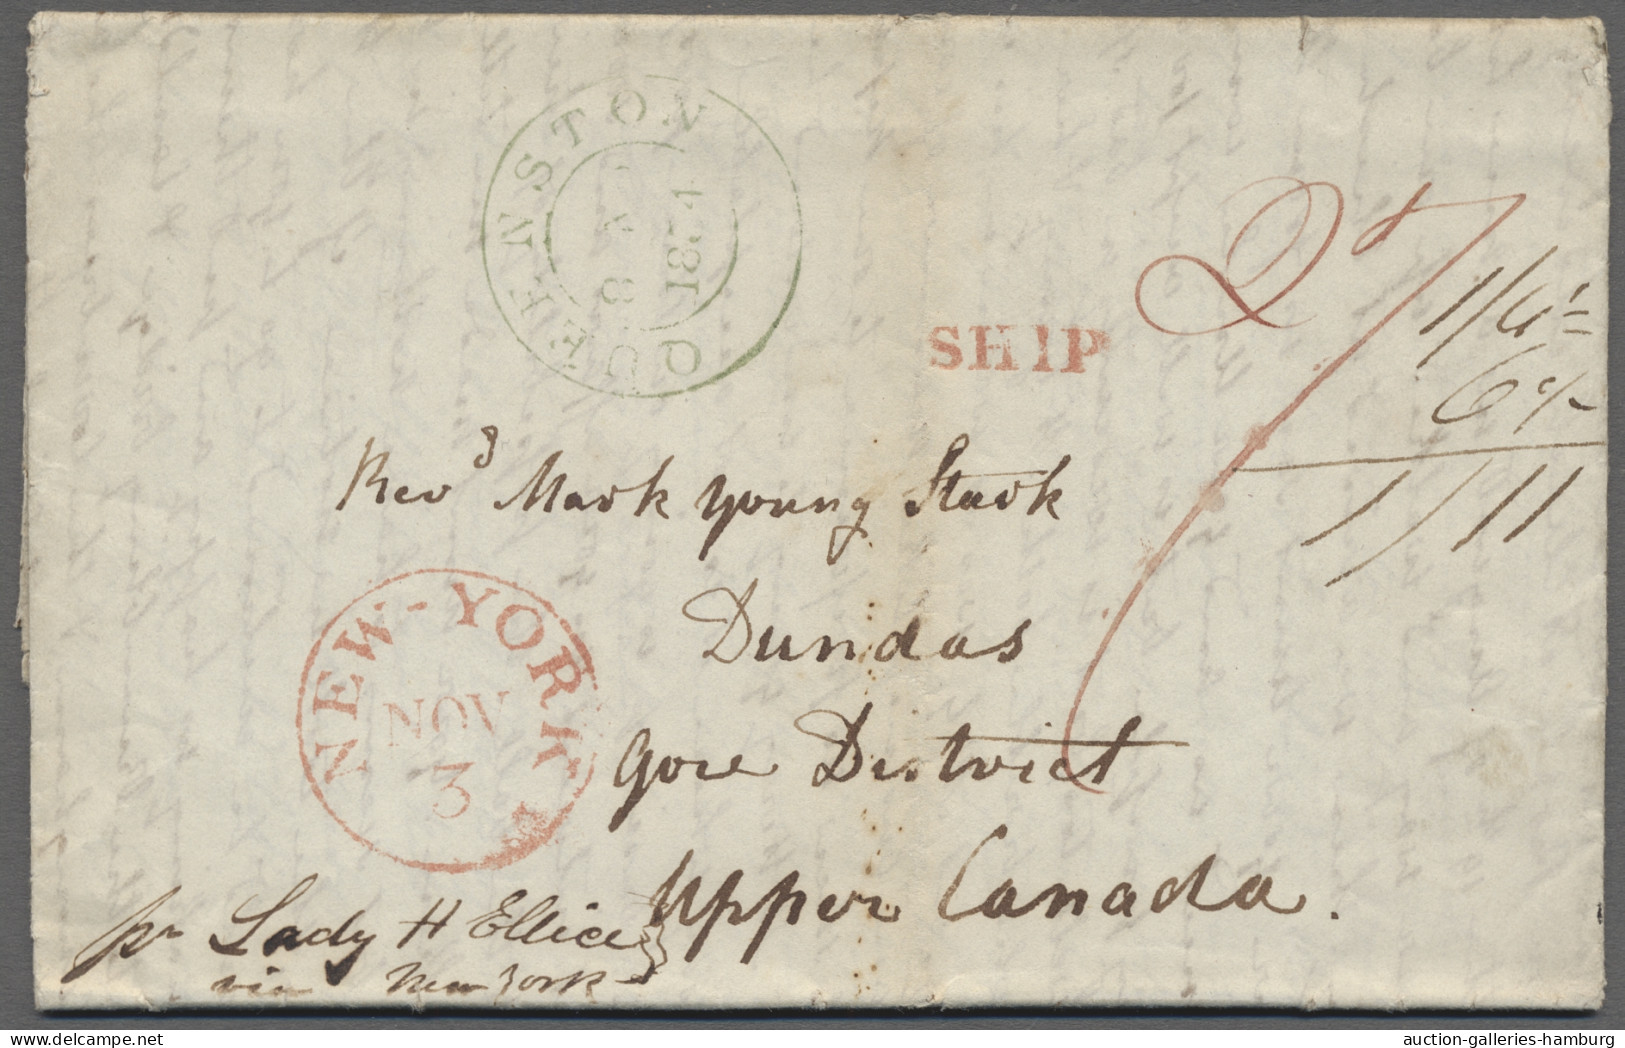 QUEENSTON
8 N
1834
SHIP
1/4½
6½
1/11
Revd Mark Young Stark
Dundas
Gore District
Upper Canada.
NEW-YORK
NOV
3
pr Lady H Ellice
via New York
auction-galleries-hamburg